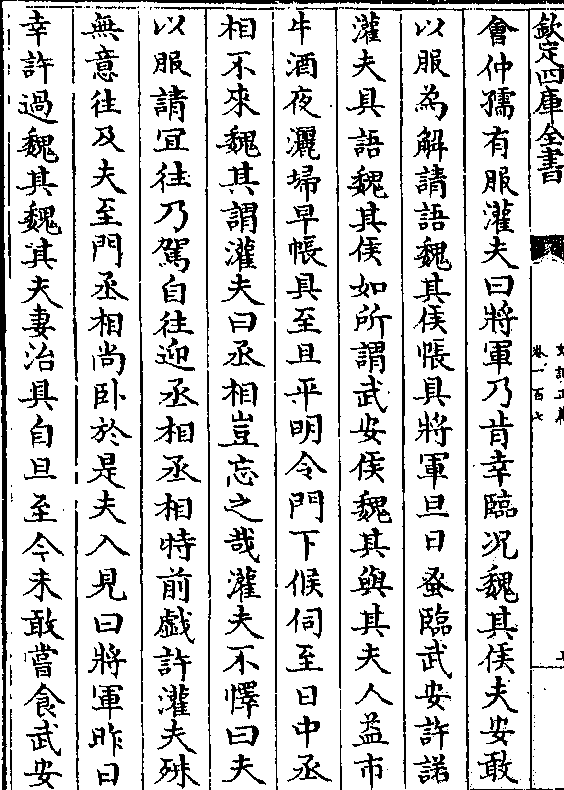 欽定四庫全書
史記正義
卷一百七
會仲孺有服灌夫曰將軍乃肯幸臨况魏其侯夫安敢
以服為解請語魏其侯帳具將軍旦日蚤臨武安許諾
灌夫具語魏其侯如所謂武安侯魏其與其夫人益市
牛酒夜灑埽早帳具至旦平明令門下候伺至日中丞
相不來魏其謂灌夫曰丞相豈忘之哉灌夫不懌曰夫
以服請宜往乃駕自往迎丞相丞相特前戯許灌夫殊
無意往及夫至門丞相尚卧於是夫入見曰將軍昨日
幸許過魏其魏其夫妻治具自旦至今未敢嘗食武安